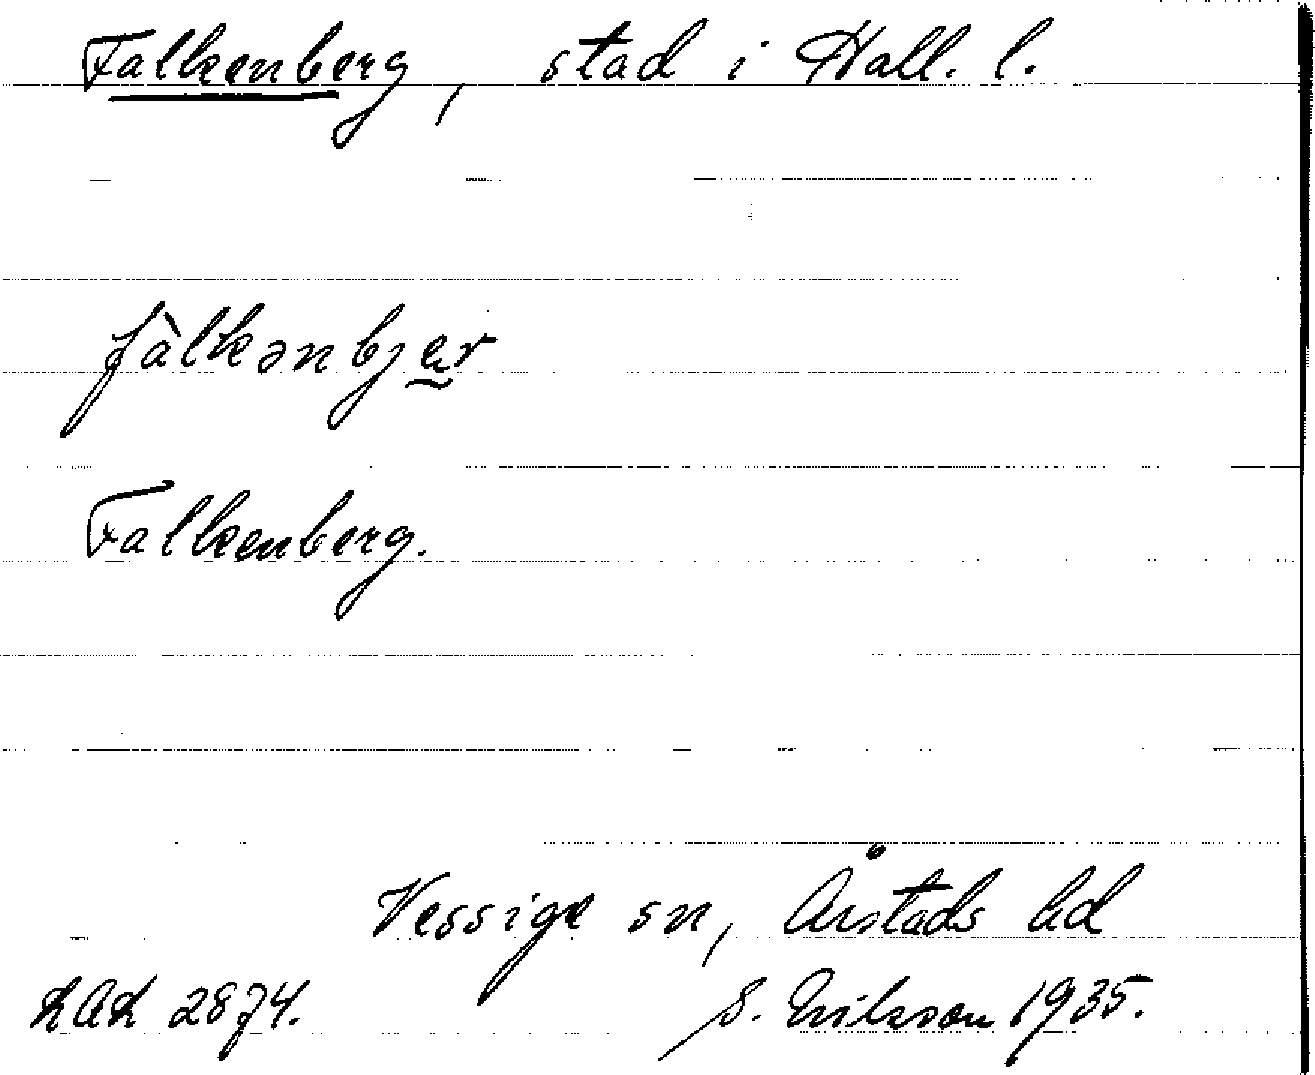 Falkenberg, stad i Hall. l.
fàlkənbjer
Falkenberg.
Vessige sn, Årstads hd
LAL 2874. S. Eriksson 1935.